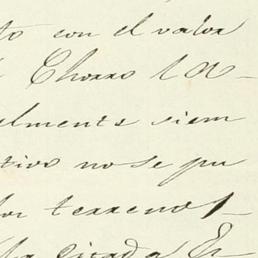 to con el valor
Chorro la
elmente siem
tivo no se pu
los terrenos
la picada En